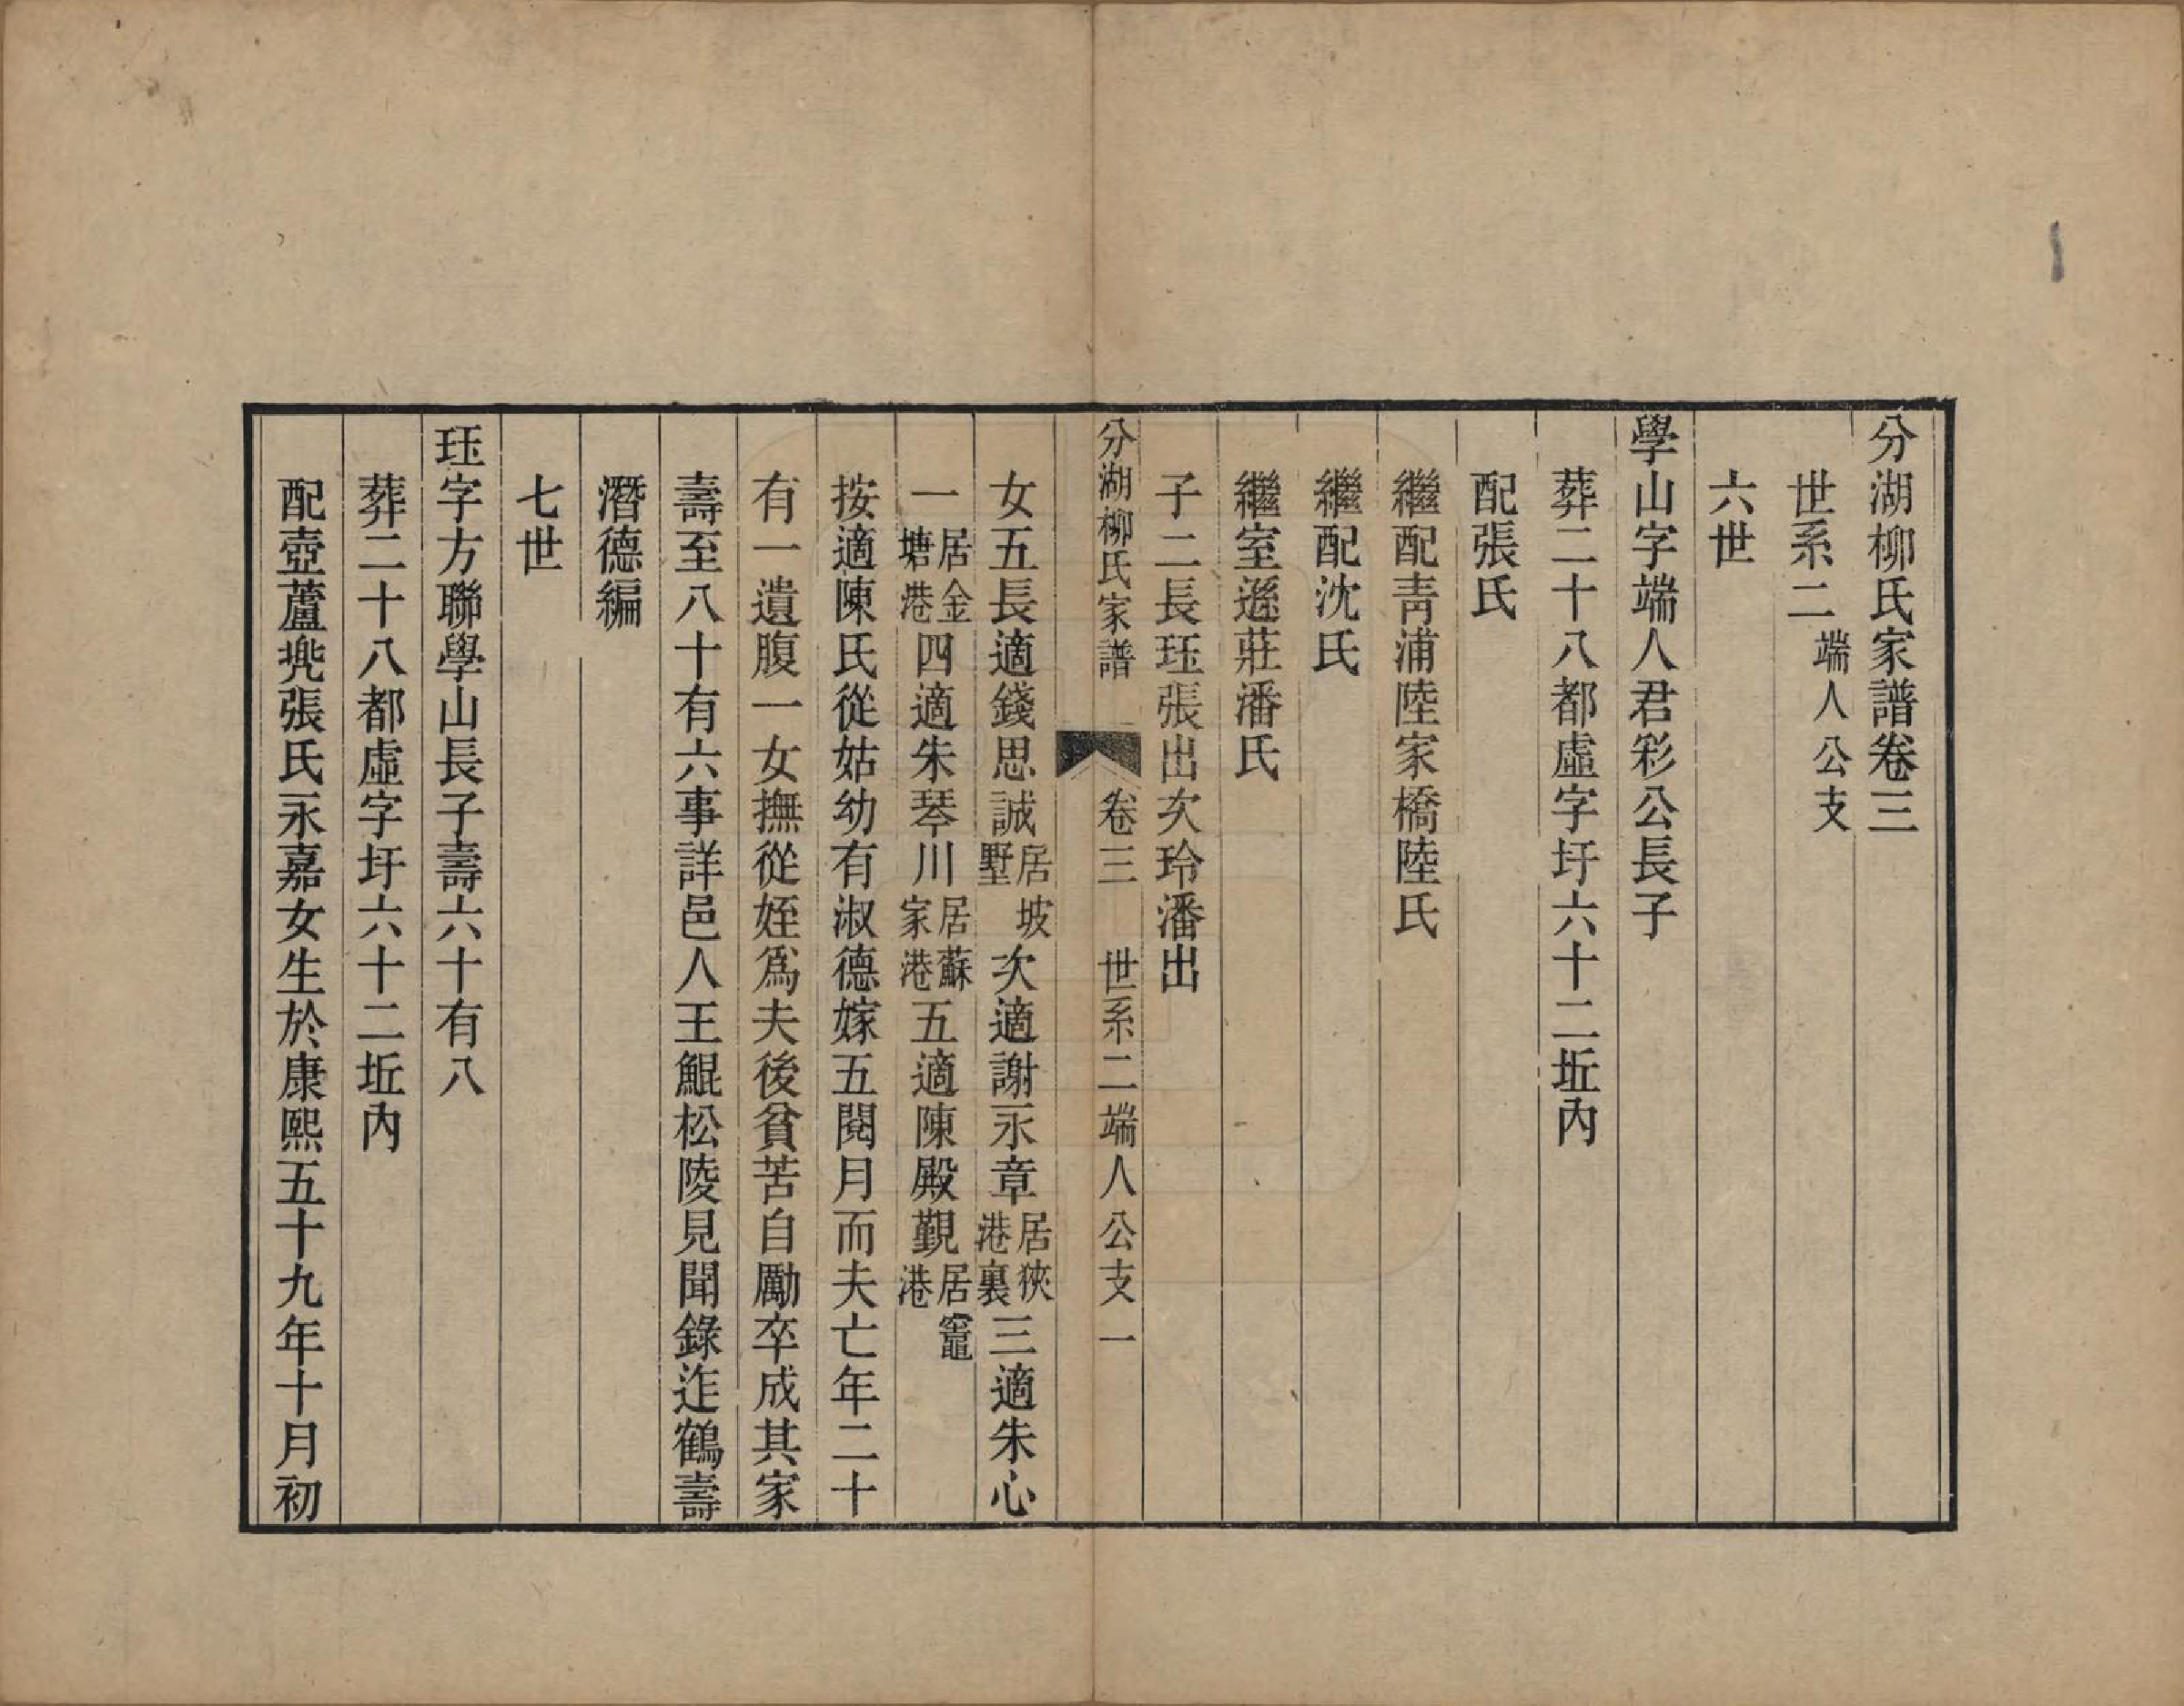 分湖柳氏家譜卷三
世系二端人公支
六世
學山字端人君彩公長子
葬二十八都虛字圩六十二坵內
配張氏
繼配青浦陸家橋陸氏
繼配沈氏
繼室遜莊潘氏
子二長珏張出次玲潘出
分湖柳氏家譜 卷三 世系二端人公支 一
女五長適錢思誠居坡墅次適謝永章居狹港裏三適朱心
一居金塘港四適朱琴川居蘇家港五適陳殿覲居竈港
按適陳氏從姑幼有淑德嫁五閱月而夫亡年二十
有一遺腹一女撫從姪爲夫後貧苦自勵卒成其家
壽至八十有六事詳邑人王鯤松陵見聞錄迮鶴壽
潛德編
七世
珏字方聯學山長子壽六十有八
葬二十八都虛字圩六十二坵內
配壺蘆兠張氏永嘉女生於康熙五十九年十月初